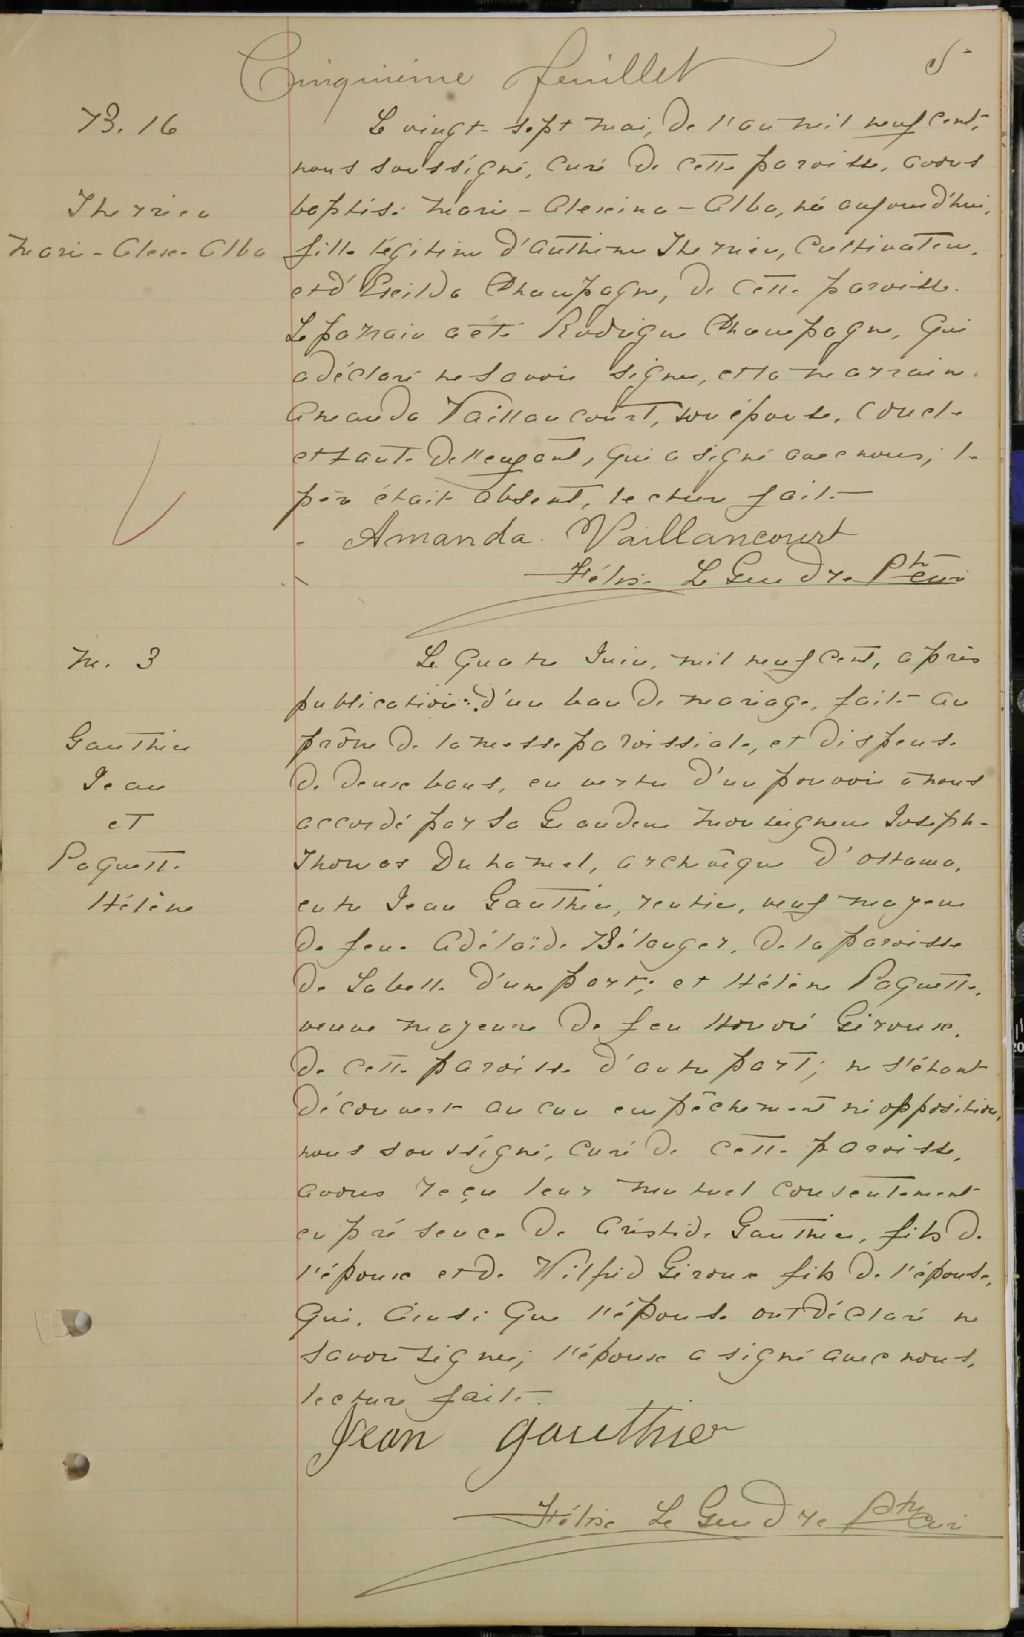 Cinquième feuillet
5
B. 16
Therien
Marie-Alex-Alba
Le vingt-sept mai, de l'an mil neuf cent,
nous soussigné, curé de cette paroisse, avons
baptisé Marie-Alexina-Alba, née aujourd'hui,
fille légitime d'Anthime Therien, cultivateur,
et d'Exilda Champagne, de cette paroisse.
Le parrain a été Rodrigue Champagne, qui
a déclaré ne savoir signer, et la marraine
Amanda Vaillancourt, son épouse, oncle
et tante de l'enfant, qui a signé avec nous; le
père était absent, lecture faite
Amanda Vaillancourt
Félix Le Gendre Ptre curé
M. 3
Gauthier
Jean
et
Paquette
Hélène
Le quatre Juin, mil neuf cent, après
publication d'un ban de mariage, faite au
prône de la messe paroissiale, et dispense
de deux bans, en vertu d'un pouvoir à nous
accordé par Sa Grandeur Monseigneur Joseph-
Thomas Duhamel, archevêque d'Ottawa,
entre Jean Gauthier, rentier, veuf majeur
de feue Adélaïde Bélanger, de la paroisse
de Labelle d'une part; et Hélène Paquette,
veuve majeure de feu Honoré Giroux,
de cette paroisse d'autre part; ne s'étant
découvert aucun empêchement ni opposition,
nous soussigné, curé de cette paroisse,
avons reçu leur mutuel consentement
en présence de Aristide Gauthier, fils de
l'époux et de Wilfrid Giroux fils de l'épouse,
qui, ainsi que l'épouse ont déclaré ne
savoir signer; l'époux a signé avec nous,
lecture faite.
Jean Gauthier
Félix Le Gendre Ptre curé